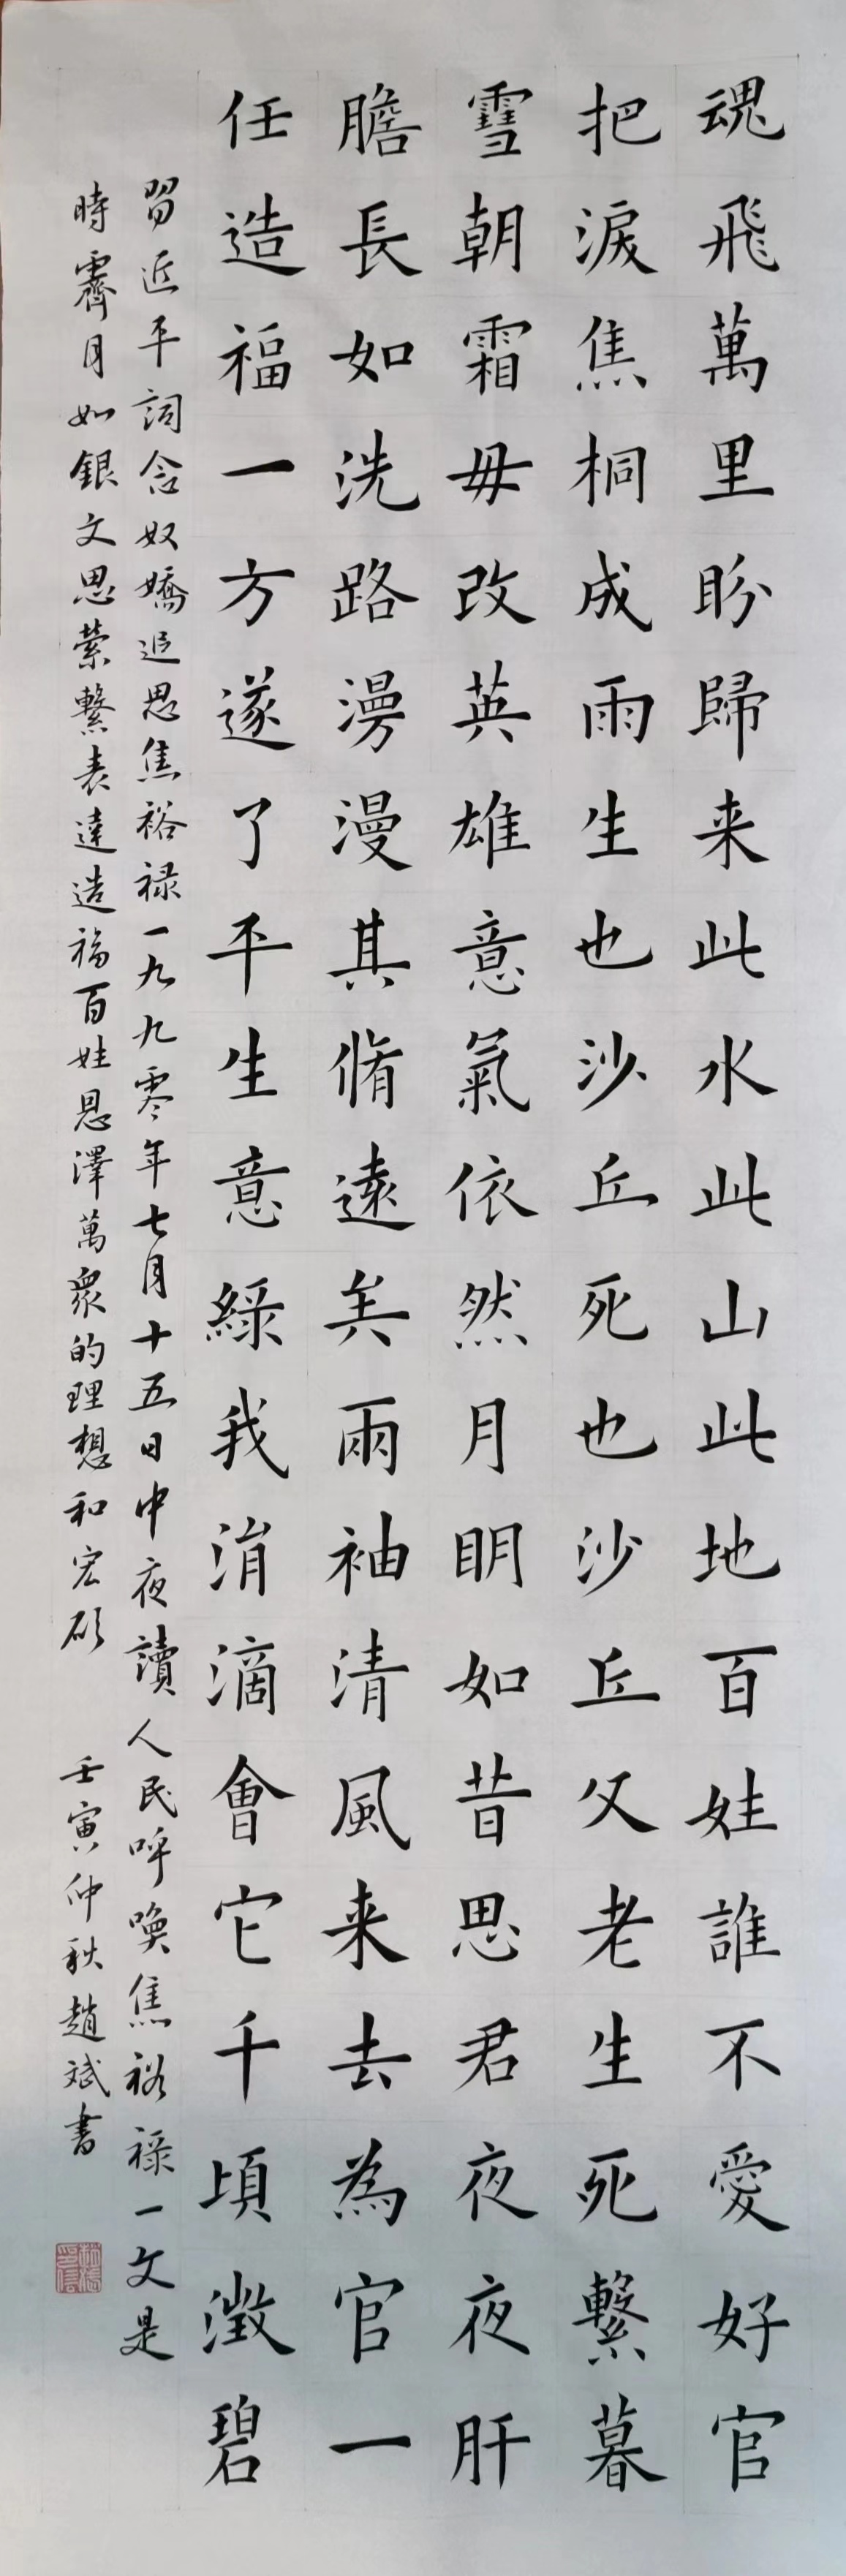 魂飛萬里盼歸来此水此山此地百姓誰不愛好官
把淚焦桐成雨生也沙丘死也沙丘父老生死繫暮
雪朝霜毋改英雄意氣依然月明如昔思君夜夜肝
膽長如洗路漫漫其脩遠矣兩袖清風来去為官一
任造福一方遂了平生意綠我涓滴會它千頃澂碧
習近平詞念奴嬌追思焦裕禄一九九零年七月十五日中夜讀人民呼喚焦裕禄一文是
時霽月如銀文思縈繫表達造福百姓恩澤萬眾的理想和宏願 壬寅仲秋趙斌書